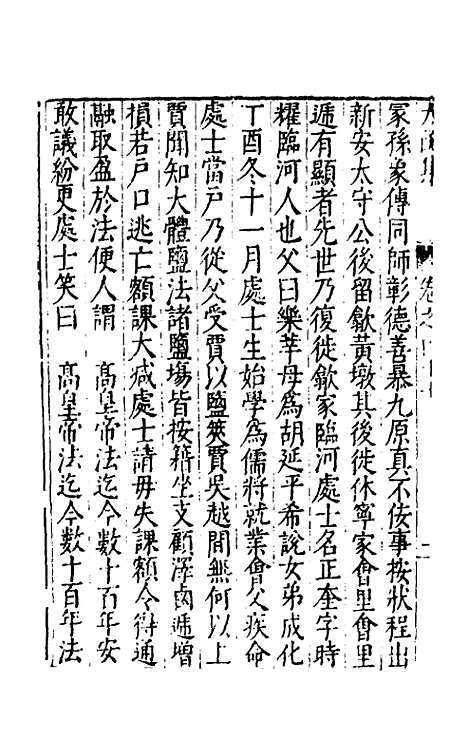 冢孫象傳同師彰德善暴九原真不佞事按狀程出
新安太守公後留歙黃墩其後徙休寧家會里會里
遞有顯者先世乃復徙歙家臨河處士名正奎字時
耀臨河人也父曰樂莘母爲胡延平希說女弟成化
丁酉冬十一月處士生始學爲儒將就業會父疾命
處士當戶乃從父受賈以鹽筴賈吳越間無何以上
賈聞知大體鹽法諸鹽場皆按籍坐支顧澤鹵遞增
損若戶口逃亡額課大减處士請毋失課額令得通
融取盈於法便人謂　高皇帝法迄今數十百年安
敢議紛更處士笑曰　高皇帝法迄今數十百年法